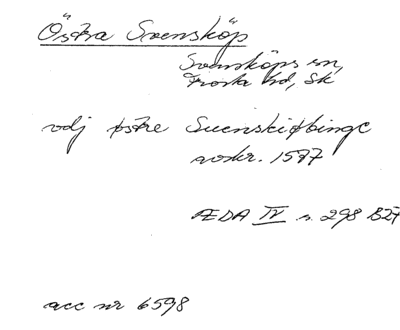 Östra Svensköp
Svensköps sn,
Frosta hd, Sk
vdj østre Suenskiøbinge
avskr. 1587
ÆDA IV s. 298 B27
acc nr 6598